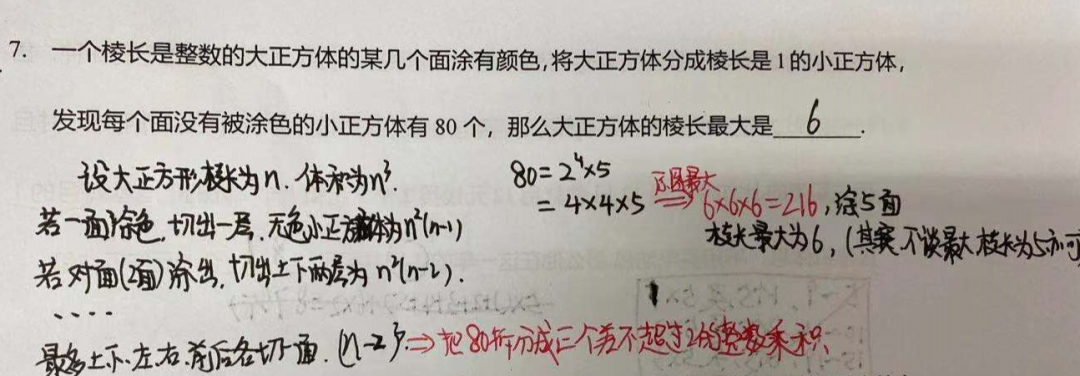 7. 一个棱长是整数的大正方体的某几个面涂有颜色,将大正方体分成棱长是1的小正方体,
发现每个面没有被涂色的小正方体有 80 个,那么大正方体的棱长最大是 6 .
设大正方形棱长为n. 体积为n³.
80=2⁴×5
=4×4×5 ⇒ 6×6×6=216,涂5面
若一面涂色,切出一层,无色小正方体为n²(n-1)
棱长最大为6,(其实不谈最大,棱长为5亦可
若对面(2面)涂出,切出上下两层为 n²(n-2).
····
最多上下、左右、前后各切一面.(n-2)³⇒把80拆分成三个差不超过2的整数乘积